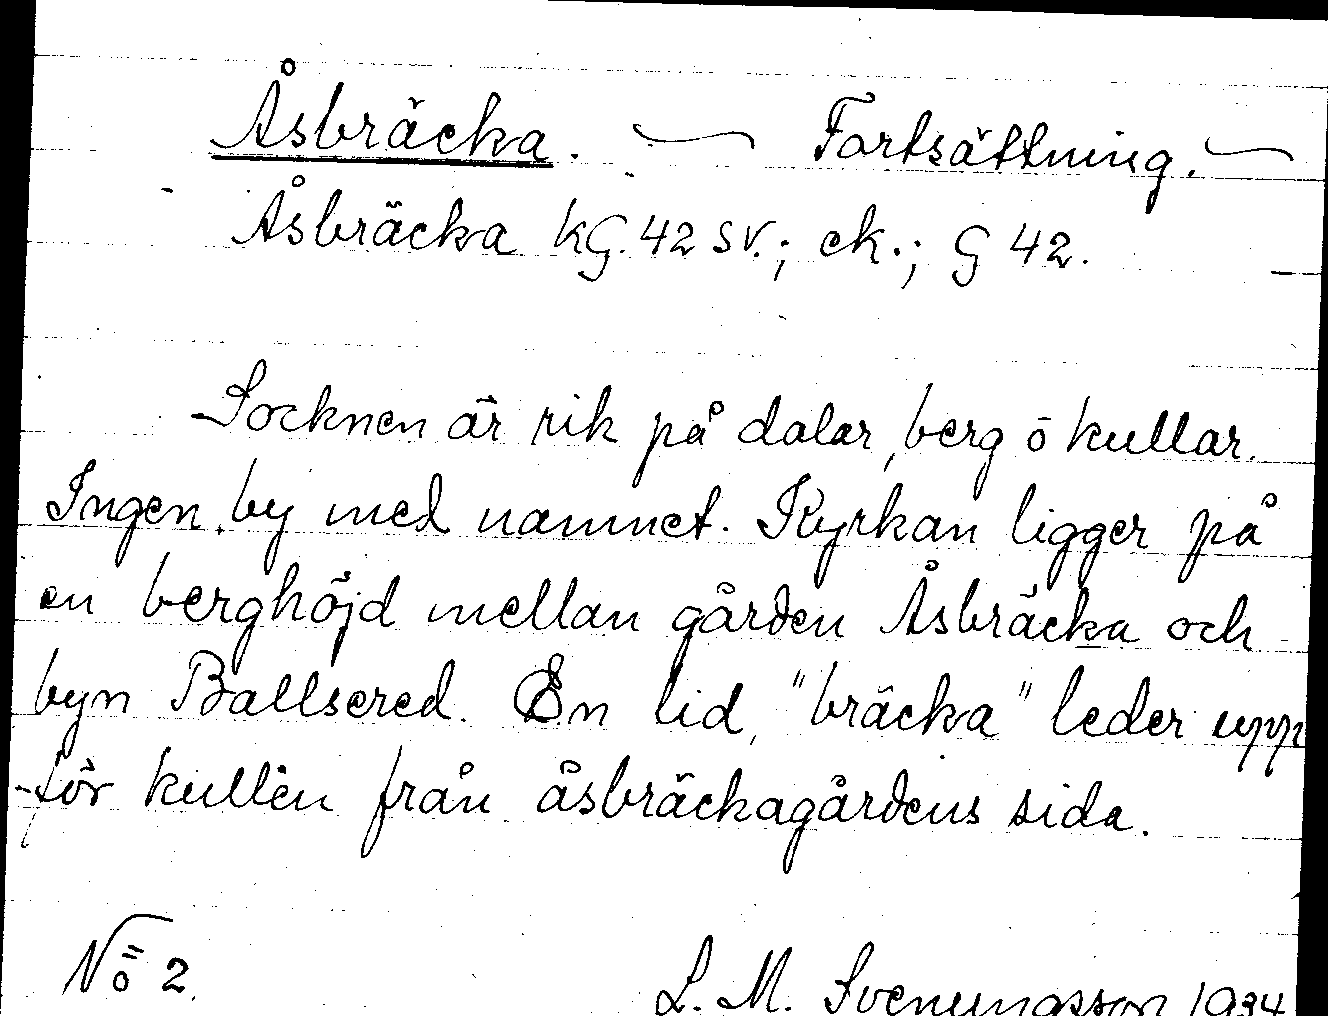 Åsbräcka. — Fortsättning. —
Åsbräcka kG. 42 sv.; ek.; G 42.
Socknen är rik på dalar, berg ō kullar.
Ingen by med namnet. Kyrkan ligger på
en berghöjd mellan gården Åsbräcka och
byn Ballsered. En lid, "bräcka" leder upp
för kullen från åsbräckagårdens sida.
No 2.
L. M. Svenungsson 1934